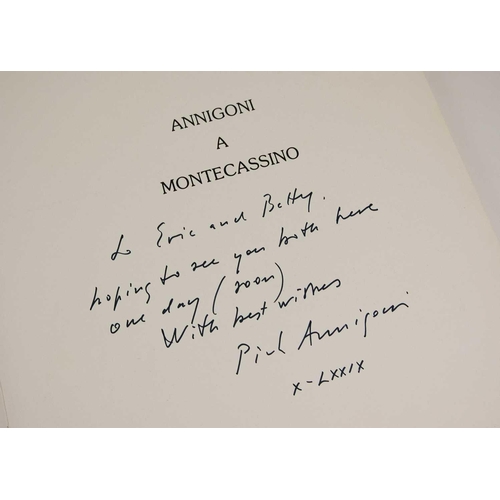 ANNIGONI
A
MONTECASSINO
To Eric and Betty,
hoping to see you both here
one day (soon)
With best wishes
Annigoni
X-LXXIX